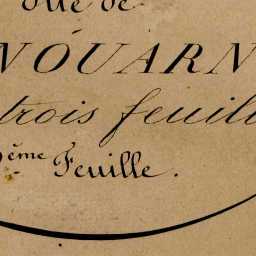 dite de
NOUARN
trois feuill
ème Feuille.